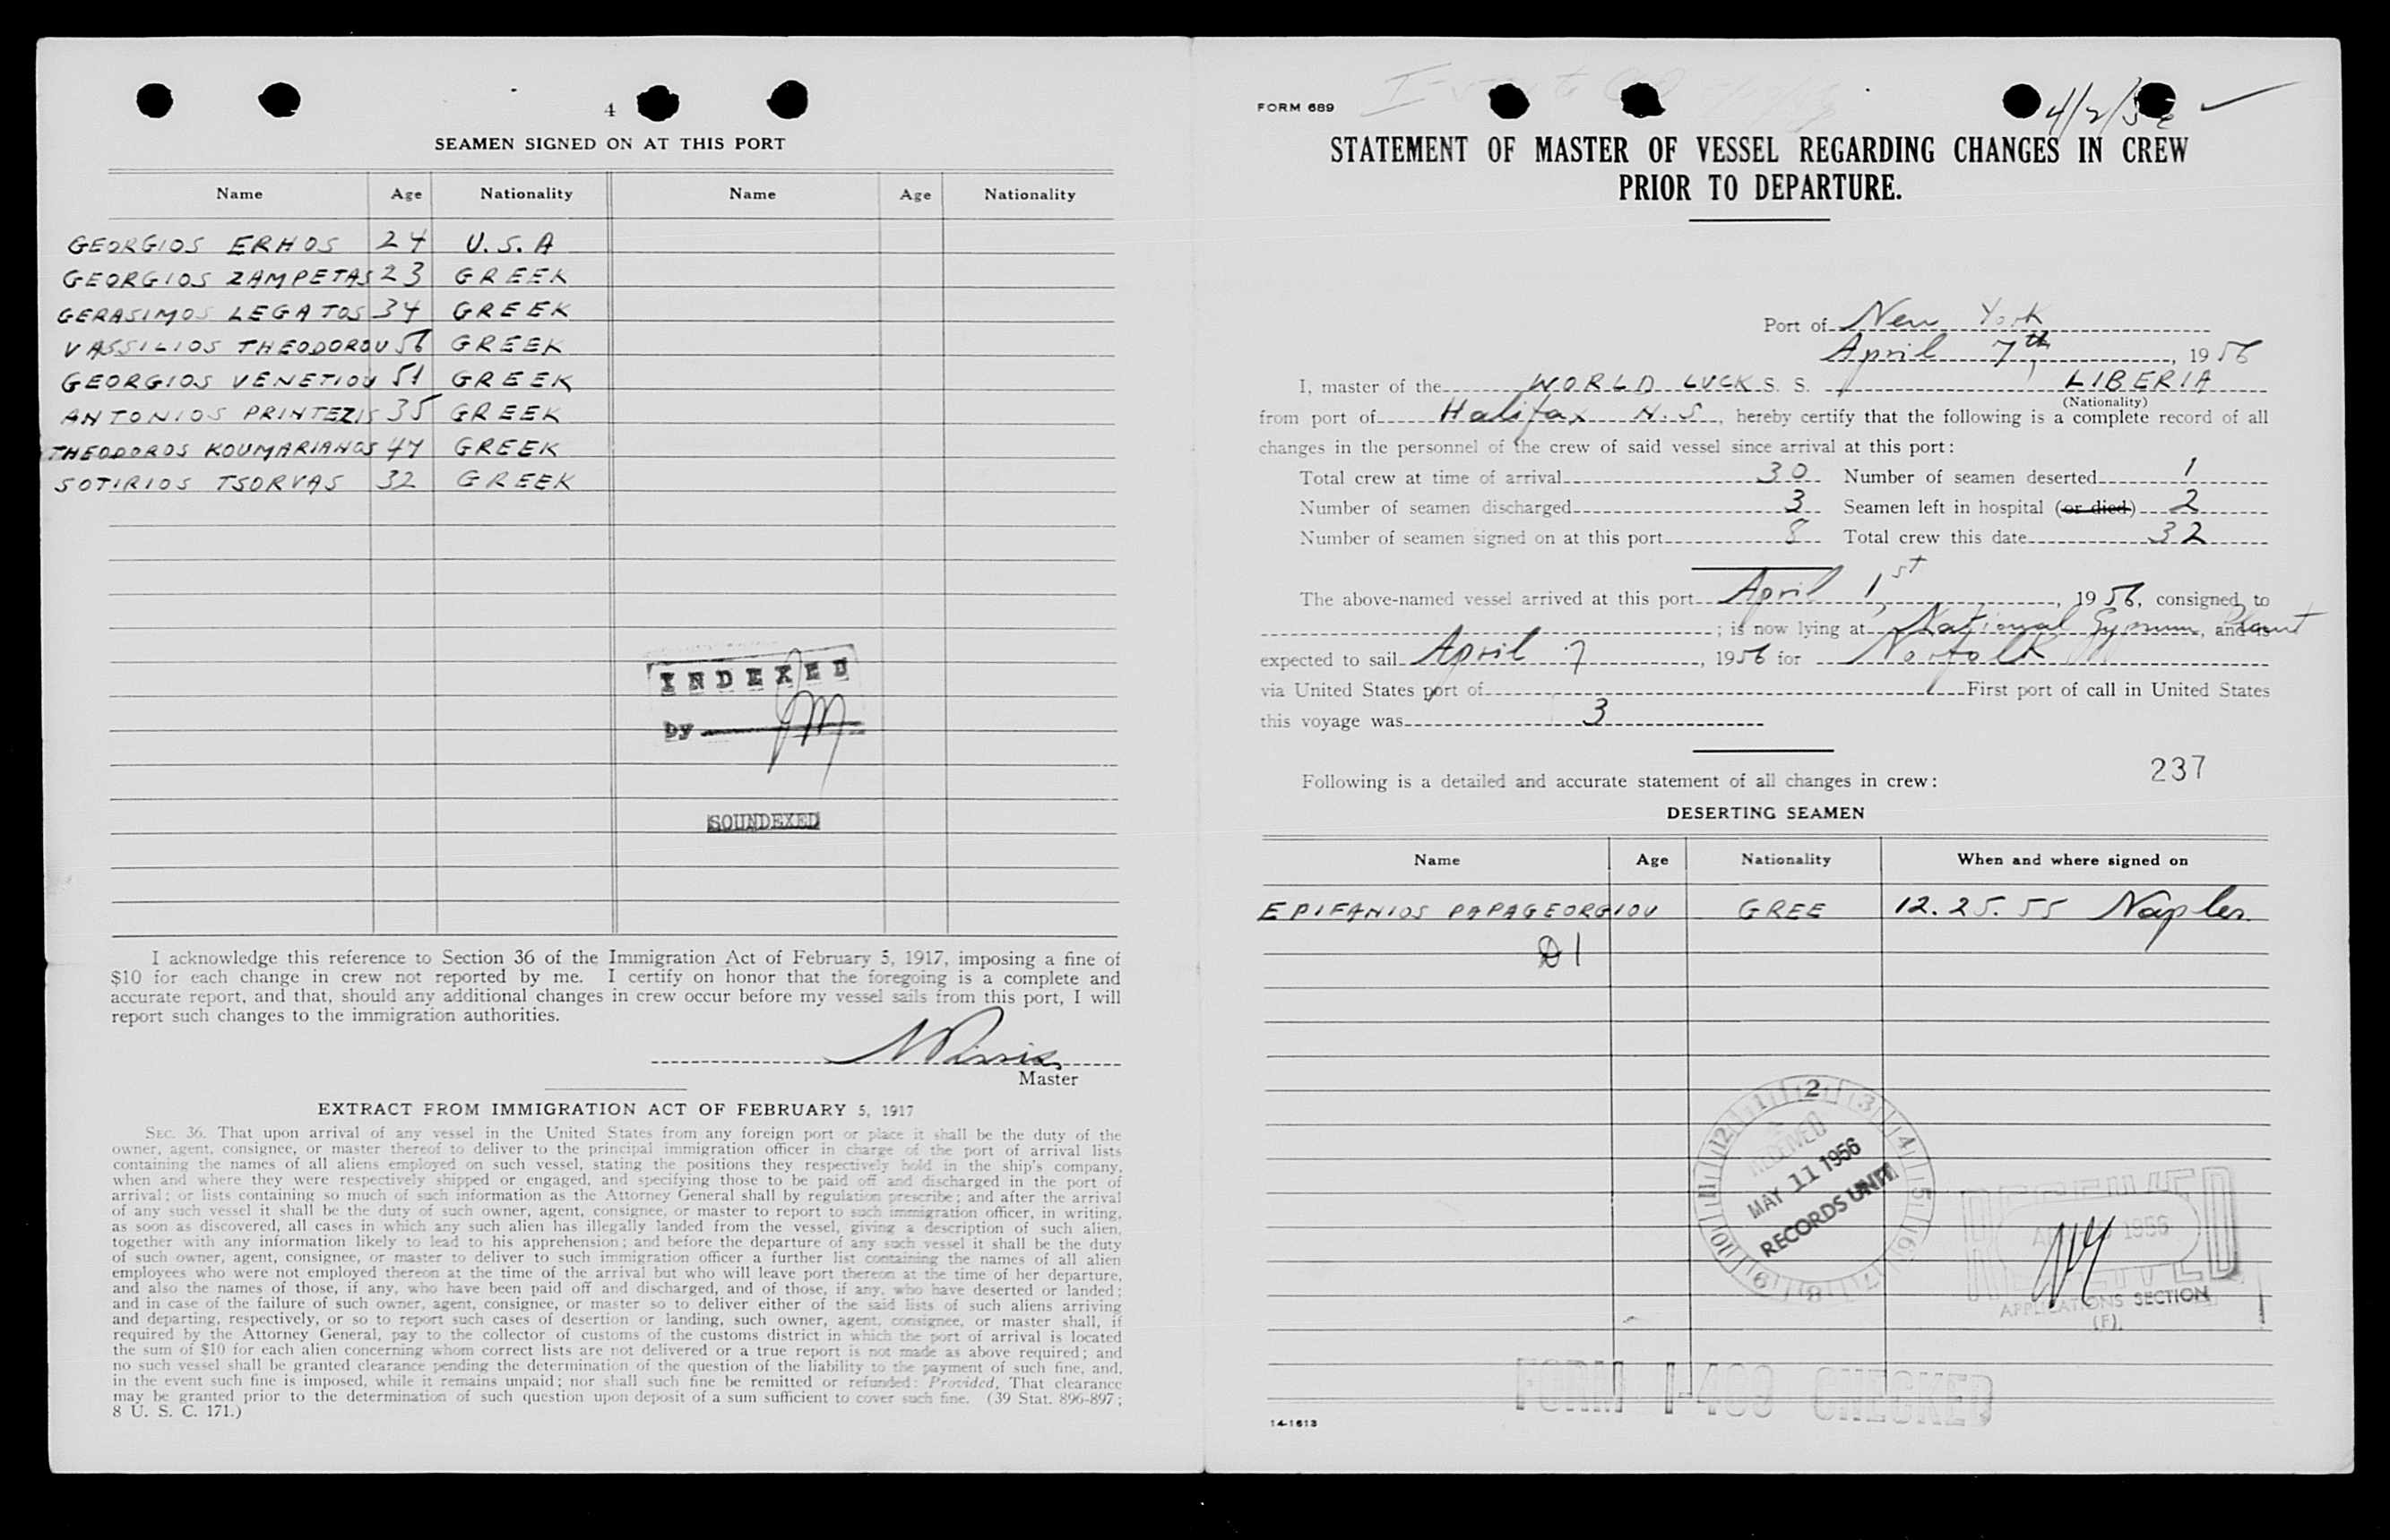 4
SEAMEN SIGNED ON AT THIS PORT
Name Age Nationality Name Age Nationality
GEORGIOS ERHOS 24 U.S.A
GEORGIOS ZAMPETAS 23 GREEK
GERASIMOS LEGATOS 34 GREEK
VASSILIOS THEODOROU 56 GREEK
GEORGIOS VENETIOU 51 GREEK
ANTONIOS PRINTEZIS 35 GREEK
THEODOROS KOUMARIANOS 47 GREEK
SOTIRIOS TSORVAS 32 GREEK
INDEXED
by JM
SOUNDEXED
I acknowledge this reference to Section 36 of the Immigration Act of February 5, 1917, imposing a fine of
$10 for each change in crew not reported by me. I certify on honor that the foregoing is a complete and
accurate report, and that, should any additional changes in crew occur before my vessel sails from this port, I will
report such changes to the immigration authorities.
Master
EXTRACT FROM IMMIGRATION ACT OF FEBRUARY 5, 1917
SEC. 36. That upon arrival of any vessel in the United States from any foreign port or place it shall be the duty of the
owner, agent, consignee, or master thereof to deliver to the principal immigration officer in charge of the port of arrival lists
containing the names of all aliens employed on such vessel, stating the positions they respectively hold in the ship's company,
when and where they were respectively shipped or engaged, and specifying those to be paid off and discharged in the port of
arrival; or lists containing so much of such information as the Attorney General shall by regulation prescribe; and after the arrival
of any such vessel it shall be the duty of such owner, agent, consignee, or master to report to such immigration officer, in writing,
as soon as discovered, all cases in which any such alien has illegally landed from the vessel, giving a description of such alien,
together with any information likely to lead to his apprehension; and before the departure of any such vessel it shall be the duty
of such owner, agent, consignee, or master to deliver to such immigration officer a further list containing the names of all alien
employees who were not employed thereon at the time of the arrival but who will leave port thereon at the time of her departure,
and also the names of those, if any, who have been paid off and discharged, and of those, if any, who have deserted or landed;
and in case of the failure of such owner, agent, consignee, or master so to deliver either of the said lists of such aliens arriving
and departing, respectively, or so to report such cases of desertion or landing, such owner, agent, consignee, or master shall, if
required by the Attorney General, pay to the collector of customs of the customs district in which the port of arrival is located
the sum of $10 for each alien concerning whom correct lists are not delivered or a true report is not made as above required; and
no such vessel shall be granted clearance pending the determination of the question of the liability to the payment of such fine, and,
in the event such fine is imposed, while it remains unpaid; nor shall such fine be remitted or refunded: Provided, That clearance
may be granted prior to the determination of such question upon deposit of a sum sufficient to cover such fine. (39 Stat. 896-897;
8 U. S. C. 171.)
FORM 689
4/2/56
STATEMENT OF MASTER OF VESSEL REGARDING CHANGES IN CREW
PRIOR TO DEPARTURE.
Port of New York
April 7th, 1956
I, master of the WORLD LUCK S. S. LIBERIA
(Nationality)
from port of Halifax N.S, hereby certify that the following is a complete record of all
changes in the personnel of the crew of said vessel since arrival at this port:
Total crew at time of arrival 30 Number of seamen deserted 1
Number of seamen discharged 3 Seamen left in hospital (or died) 2
Number of seamen signed on at this port 8 Total crew this date 32
The above-named vessel arrived at this port April 1st, 1956, consigned to
; is now lying at National Gypsum Plant, and is
expected to sail April 7, 1956 for Norfolk
via United States port of First port of call in United States
this voyage was 3
237
Following is a detailed and accurate statement of all changes in crew:
DESERTING SEAMEN
Name Age Nationality When and where signed on
EPIFANIOS PAPAGEORGIOU GREE 12.25.55 Naples.
D1
12 1 2 3 4 5 6 7 8 9 10 11
RECEIVED
MAY 11 1956
RECORDS UNIT
RECEIVED
1956
APPLICATIONS SECTION
(F).
FORM I-489 CHECKED
14-1613